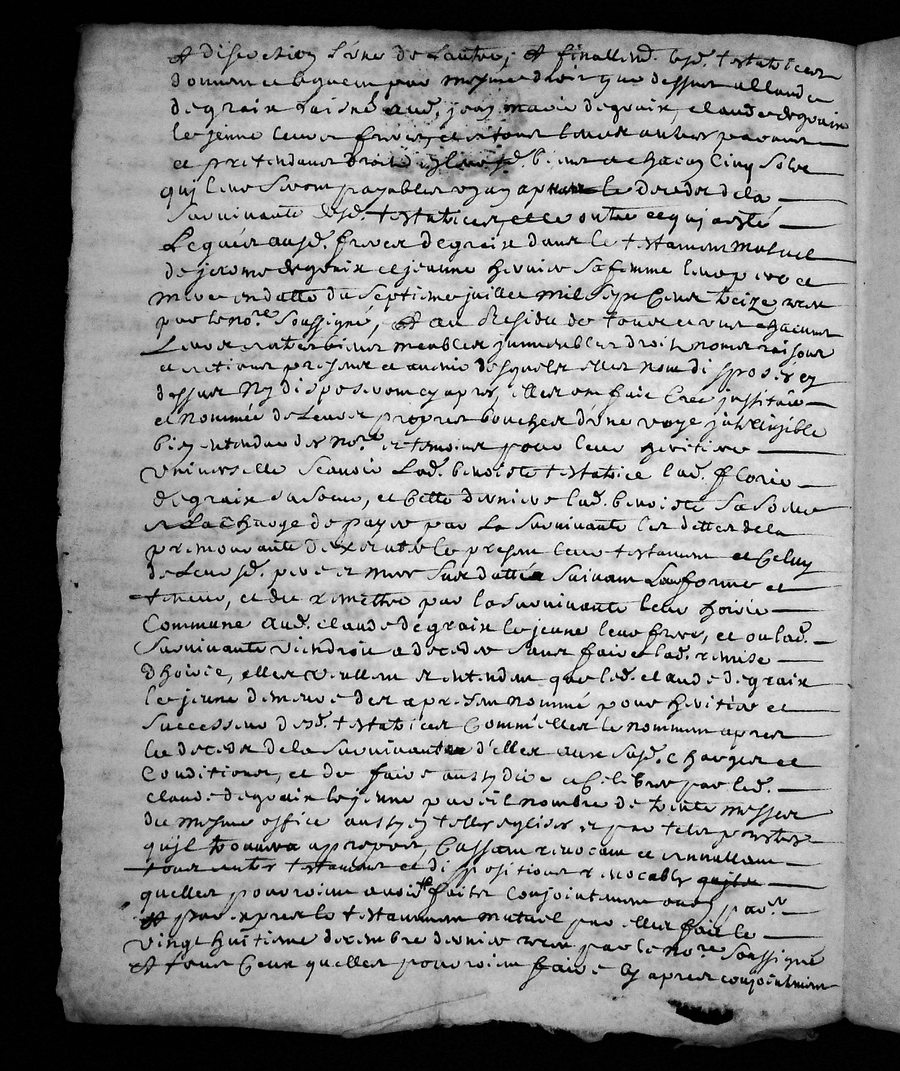 et discretion l'une de l'autre, et finallemt lesd. testatrices
donnent et leguent par mesme droit que dessus a claude
degraix laisné aud. jean marie degraix, claude degraix
le jeune leurs freres, et a tous leurs autres parans
et pretendans droit en leursd. biens a chacun cinq solz
quj leur seront payables un an apres le decedz de la
survivante desd. testatrices, et ce outre ce quj a esté
legué ausd. freres degraix dans le testament mutuel
de jerome degraix et jeanne hervier sa femme leurs pere et
mere en datte du septieme juillet mil sept cens treize receu
par le nore. soussigné, et au residu de tous et uns chacuns
leurs autres biens meubles jmmeubles droit noms raisons
et actions presens et avenir desquels elles nont disposé cy
dessus ny disposeront cy apres, elles ont fait creé jnstitué
et nommée de leurs propres bouches d'une voye jntelligible
bien entendue des nore. et temoins pour leur heritiere
universelle sçavoir lad. benoiste testatrice lad. florie
degraix sa soeur, et cette derniere lad. benoiste sa soeur
a la charge de payer par la survivante les dettes de la
premourante d'executer le present leur testament et celuy
de leursd. pere et mere sus datté suivant leur forme et
teneur, et de remettre par la survivante leur hoirie
commune aud. claude degraix le jeune leur frere, et ou lad.
survivante viendroit a deceder sans faire lad. remise
d'hoirie, elles veullent et entendent que led. claude degraix
le jeune demeure des a present nommé pour heritier et
successeur desd. testatrices comm'elles le nomment apres
le decedz de la survivante d'elles aux susd. charges et
conditions, et de faire aussy dire et celebrer par led.
claude degraix le jeune pareil nombre de trente messes
du mesme office aussy en telles eglises et par telz prestres
quil trouvera appropos, cassant revocant et annullant
tous autres testamens et dispositions revocables
quelles pourroient avoir faites conjointement ou separt.
et par exprès le testament mutuel par elles fait le
vingt huitieme decembre dernier receu par le nore. soussigné
et tous ceux quelles pourroient faire cy apres conjointement